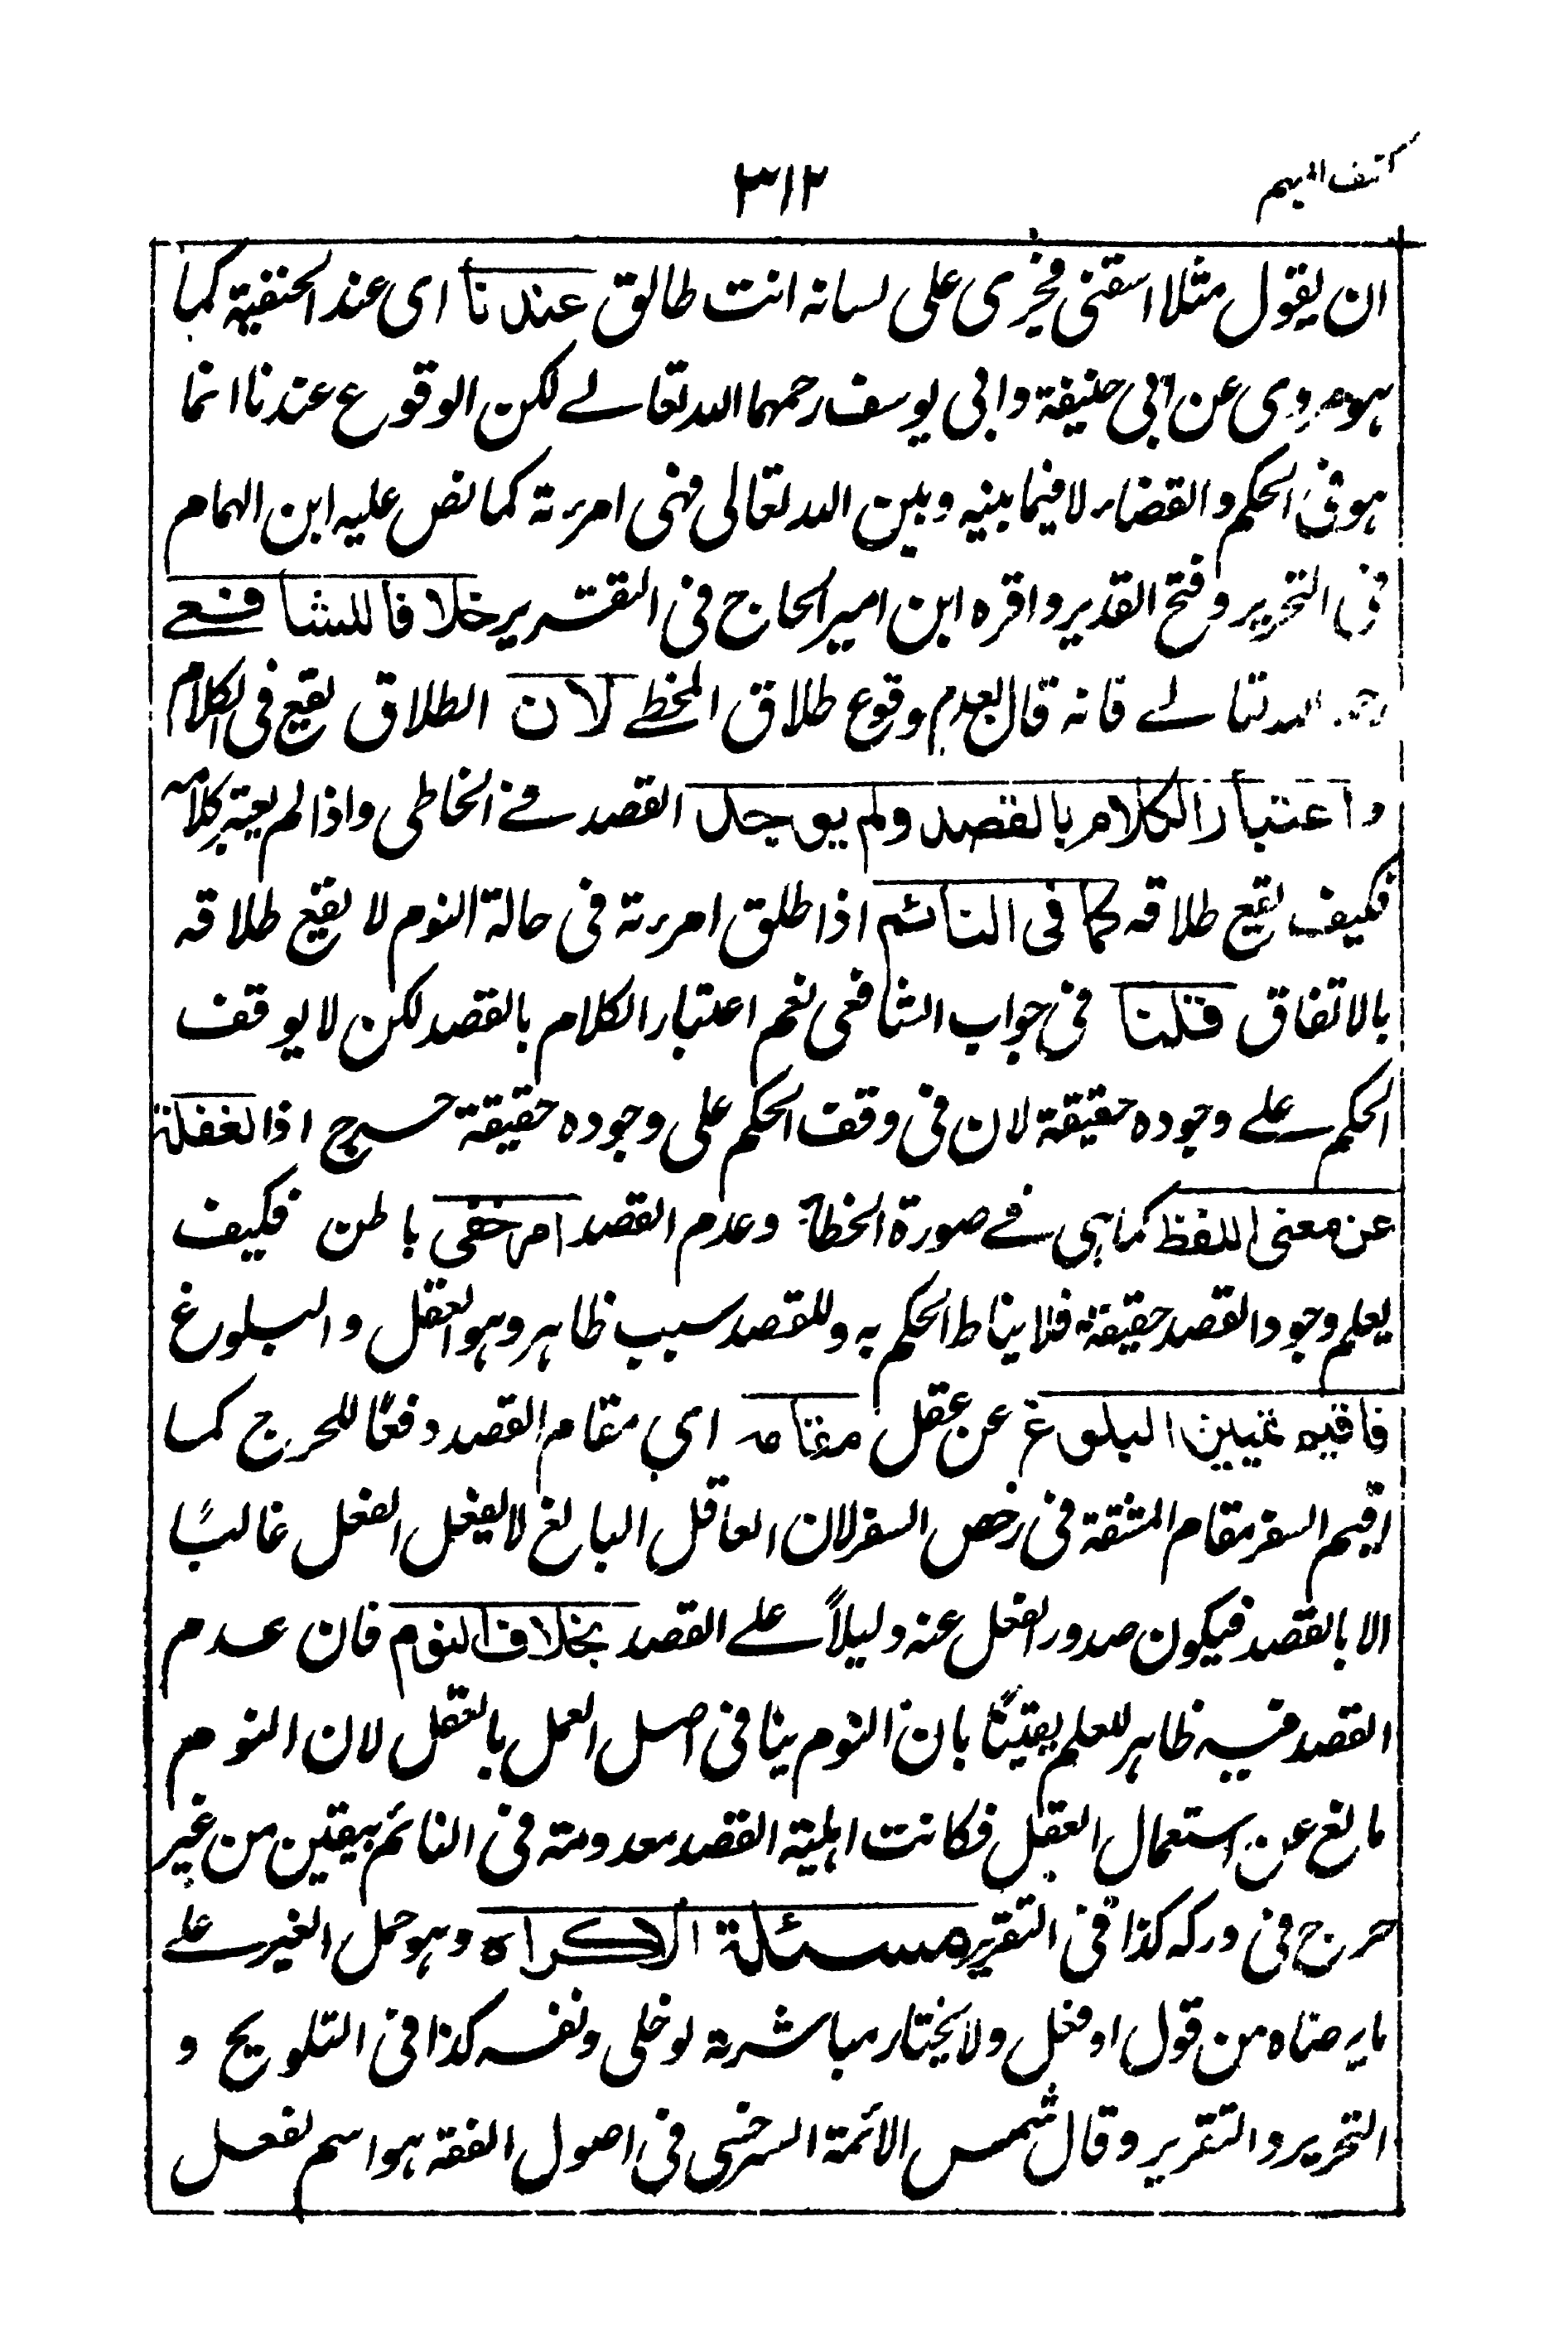 كشف المبهم
٣١٢
ان يقول مثلا اسقنى فيجرى على لسانه انت طالق عندنا اى عند الحنفية كما
هو مروى عن ابى حنيفة وابى يوسف رحمهما الله تعالے لكن الوقوع عندنا انما
هو فى الحكم والقضاء لا فيما بينه وبين الله تعالى فهى امرءته كما نص عليه ابن الهمام
فى التحرير وفتح القدير واقره ابن امير الحاج فى التقرير خلافا للشافعے
رحمه الله تعالے فانه قال بعدم وقوع طلاق المخطے لان الطلاق يقع فى الكلام
و اعتبار الكلام بالقصد ولم يوجد القصد فے الخاطى واذا لم يعتبر كلامه
فكيف يقع طلاقه كما فى النائم اذا طلق امرءته فى حالة النوم لا يقع طلاقه
بالاتفاق قلنا فى جواب الشافعى نعم اعتبار الكلام بالقصد لكن لا يوقف
الحكم علے وجوده حقيقة لان فى وقف الحكم على وجوده حقيقة حرج اذا لغفلة
عن معنى اللفظ كما هى فے صورة الخطأ وعدم القصد امر خفى باطن فكيف
يعلم وجود القصد حقيقة فلا يناط الحكم به وللقصد سبب ظاهر وهو العقل والبلوغ
فاقيم تميين البلوغ عن عقل مقامه اى مقام القصد دفعًا للحرج كما
اقيم السفر مقام المشقة فى رخص السفر لان العاقل البالغ لا يفعل الفعل غالبًا
الا بالقصد فيكون صدور الفعل عنه دليلاً علے القصد بخلاف النوم فان عدم
القصد فيه ظاهر للعلم يقينًا بان النوم ينافى اصل العمل بالعقل لان النوم
مانع عن استعمال العقل فكانت اهلية القصد معدومة فى النائم بيقين من غير
حرج فى دركه كذا فى التقرير مسئلة الاكراه وهو حمل الغير علے
ما يرضاه من قول او فعل ولا يختار مباشرته لو خلى ونفسه كذا فى التلويح و
التحرير والتقرير وقال شمس الائمة السرخسى فى اصول الفقه هو اسم لفعل